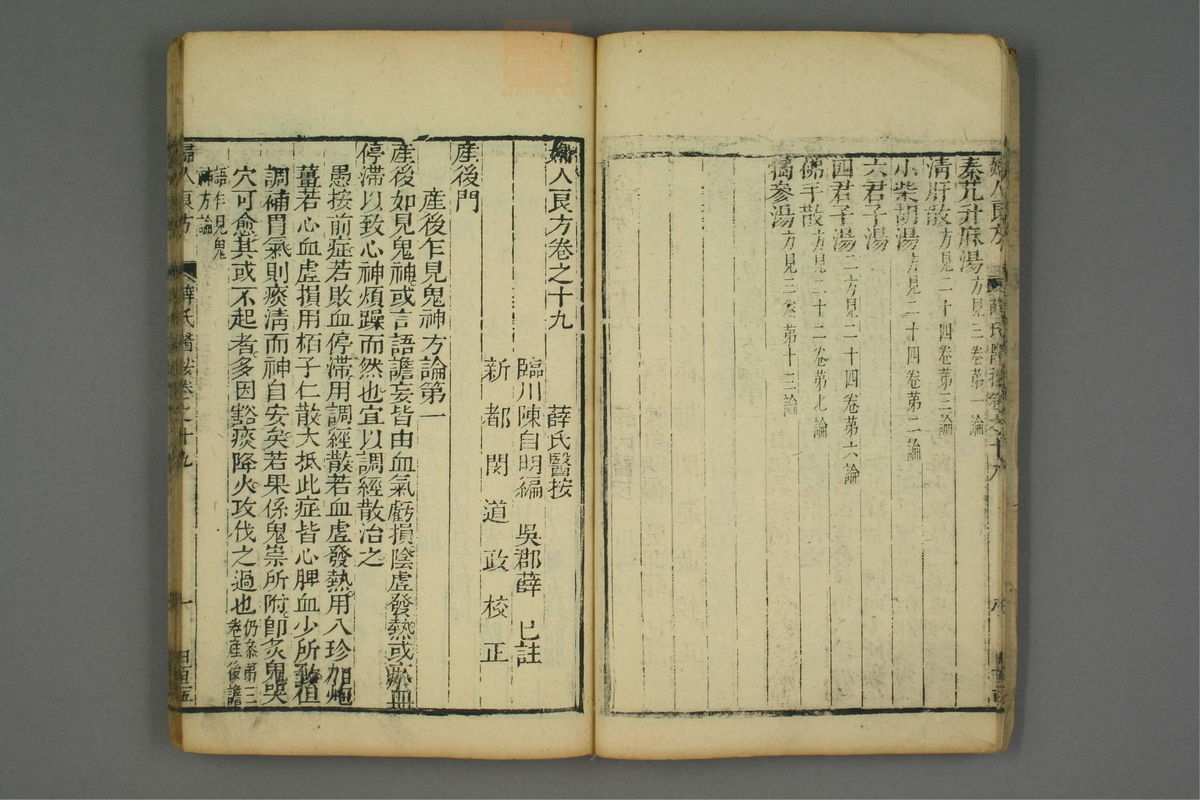 婦人良方
薛氏醫按卷之十九
秦艽升麻湯方見三卷第一論
清肝散方見二十四卷第三論
小柴胡湯方見二十四卷第二論
六君子湯
四君子湯二方見二十四卷第六論
佛手散方見二十二卷第九論
獨參湯方見三卷第十三論
婦人良方卷之十九 薛氏醫按
臨川陳自明編 吳郡薛 已註
新都閔道政校正
產後門
產後乍見鬼神方論第一
產後如見鬼神或言語譫妄皆由血氣虧損陰虛發熱或瘀血
停滯以致心神煩躁而然也宜以調經散治之
愚按前症若敗血停滯用調經散若血虛發熱用八珍加炮
薑若心血虛損用栢子仁散大抵此症皆心脾血少所致但
調補胃氣則痰清而神自安矣若果係鬼祟所附即灸鬼哭
穴可愈其或不起者多因豁痰降火攻伐之過也仍叅第三
卷產後譫
語乍見鬼
神方論
婦人良方
薛氏醫按卷之十九
一